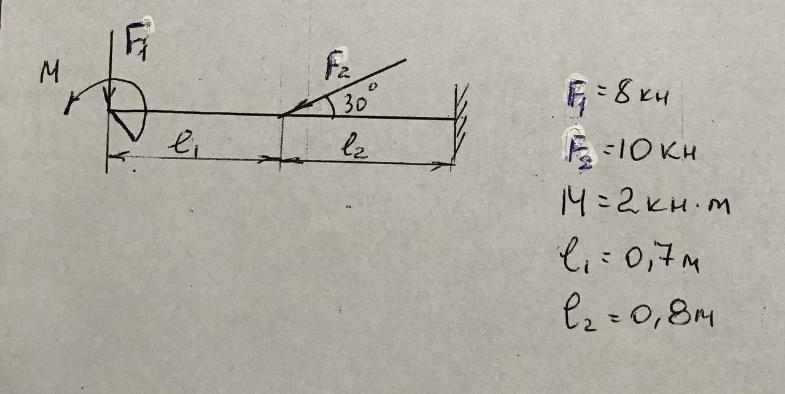 F₁
M
F₂
30°
l₁
l₂
F₁=8кн
F₂=10кн
M=2кн·м
l₁=0,7м
l₂=0,8м